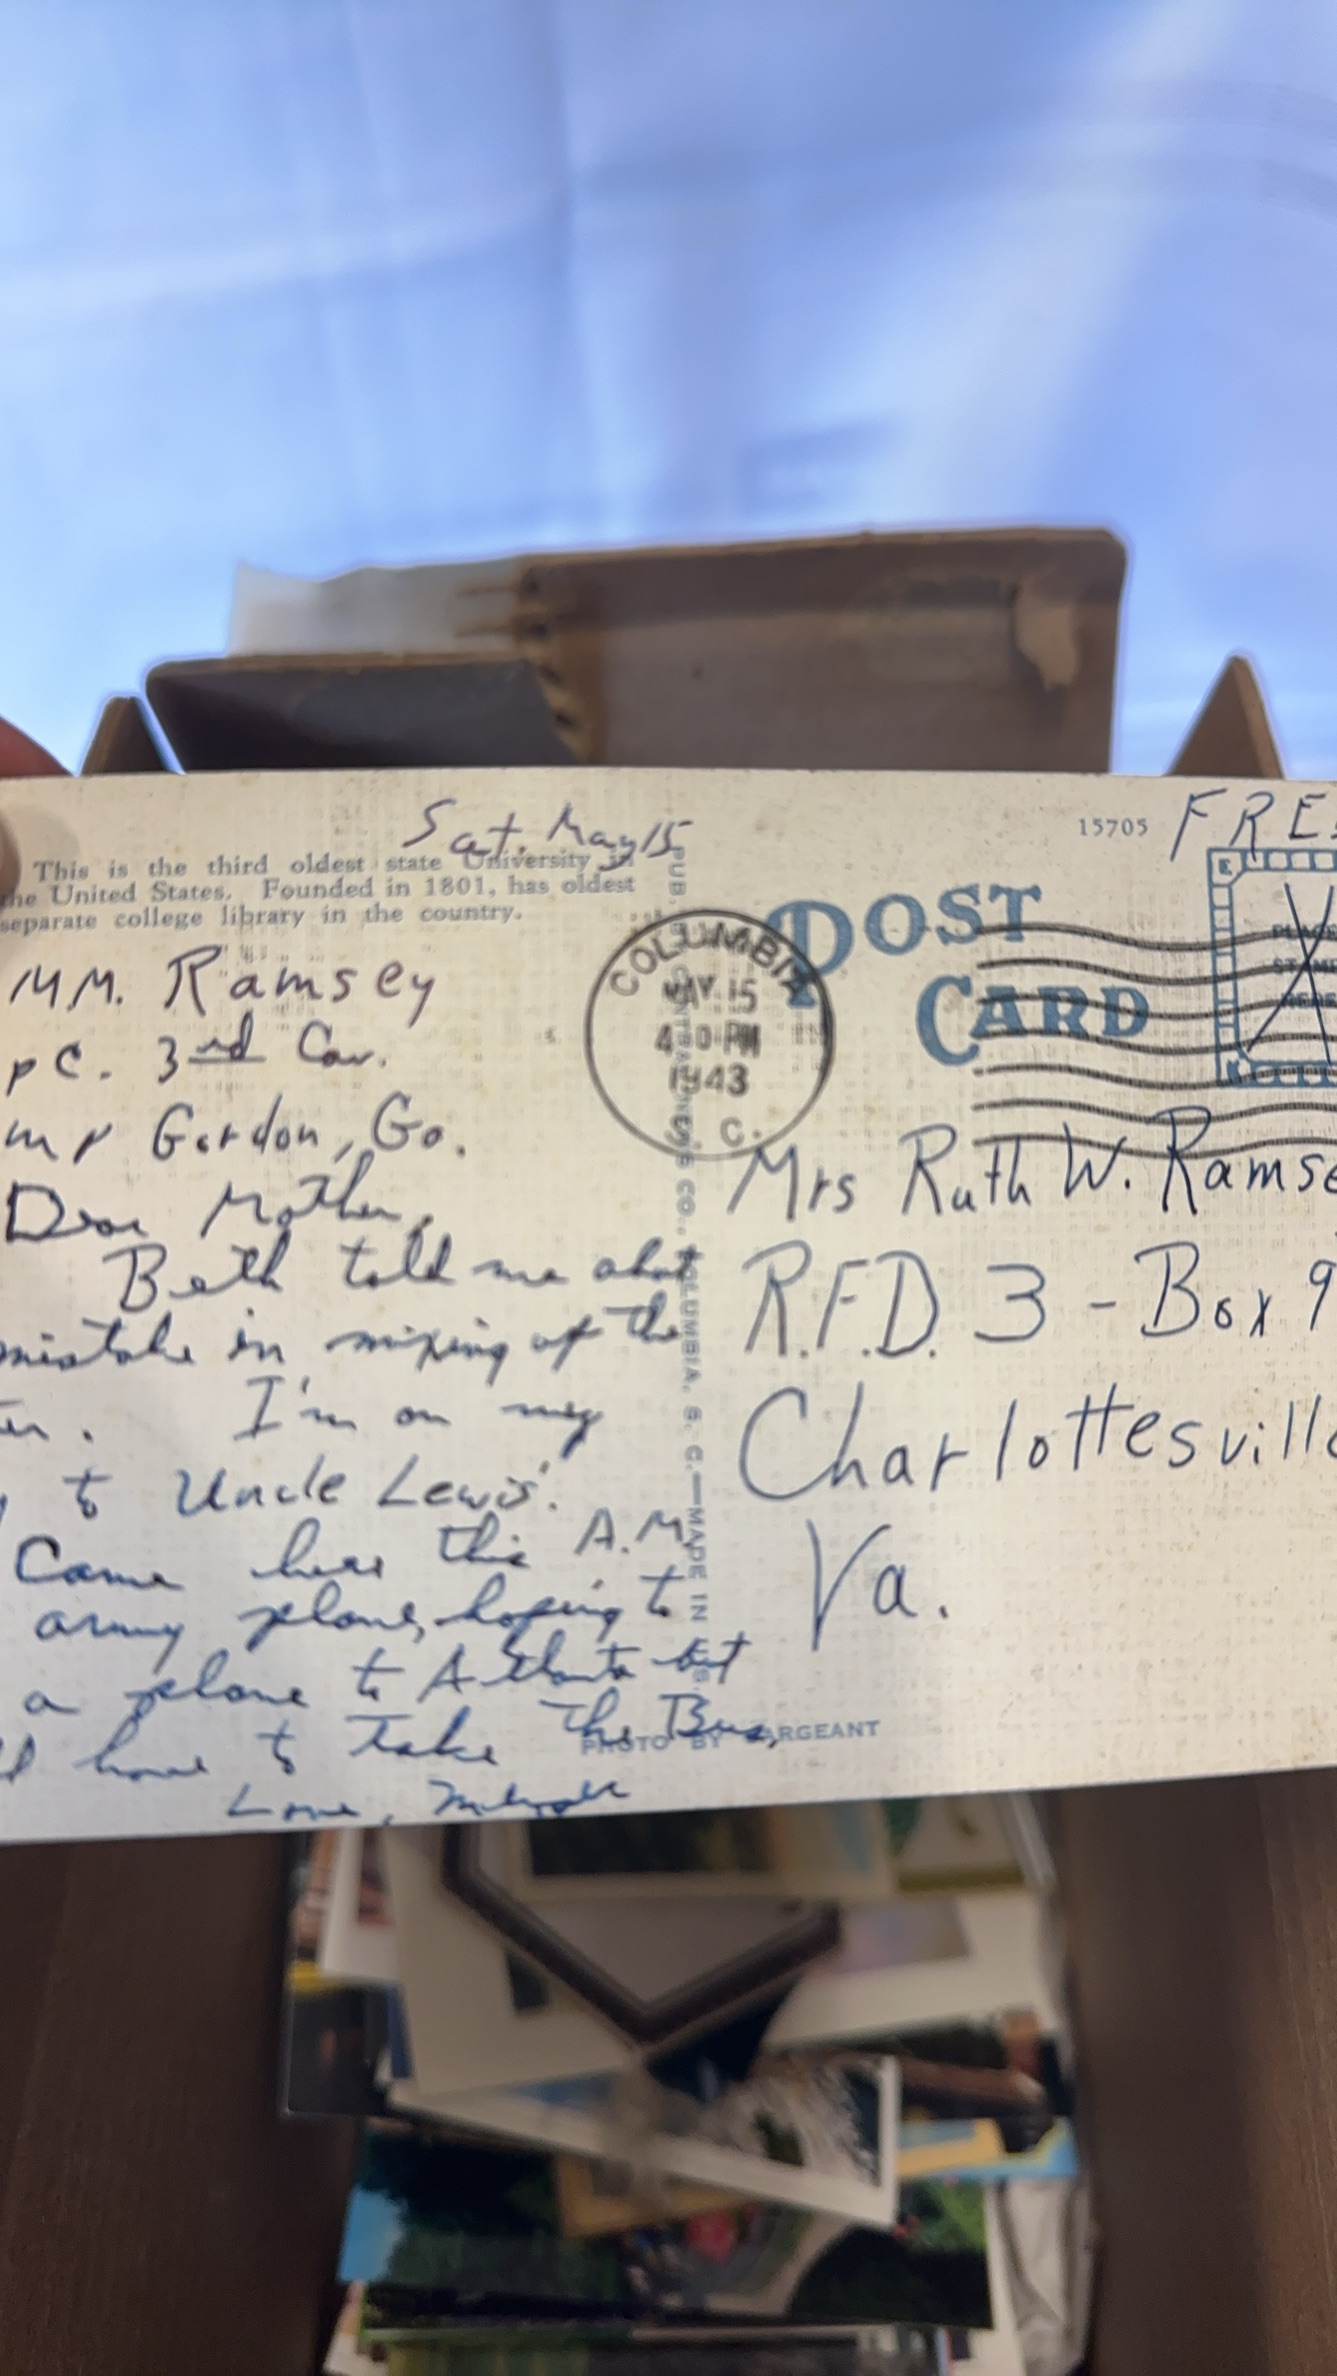 Sat. May 15
This is the third oldest state University in
the United States. Founded in 1801, has oldest
separate college library in the country.
MM. Ramsey
pc. 3rd Cav.
mp Gordon, Ga.
Dear Mother,
Beth told me about
mistake in mixing of the
I'm on my
to Uncle Lewis'.
Came here this A.M.
army plane, hoping to
a plane to Atlanta but
have to take the Bus,
Love,
PUB. CO., COLUMBIA, S. C.—MADE IN U.S.
COLUMBIA
MAY 15
PM
1943
C.
15705
FREE
POST
CARD
PLACE
STAMP
HERE
Mrs Ruth W. Ramse
R.F.D. 3 - Box 9
Charlottesville
Va.
PHOTO BY SARGEANT